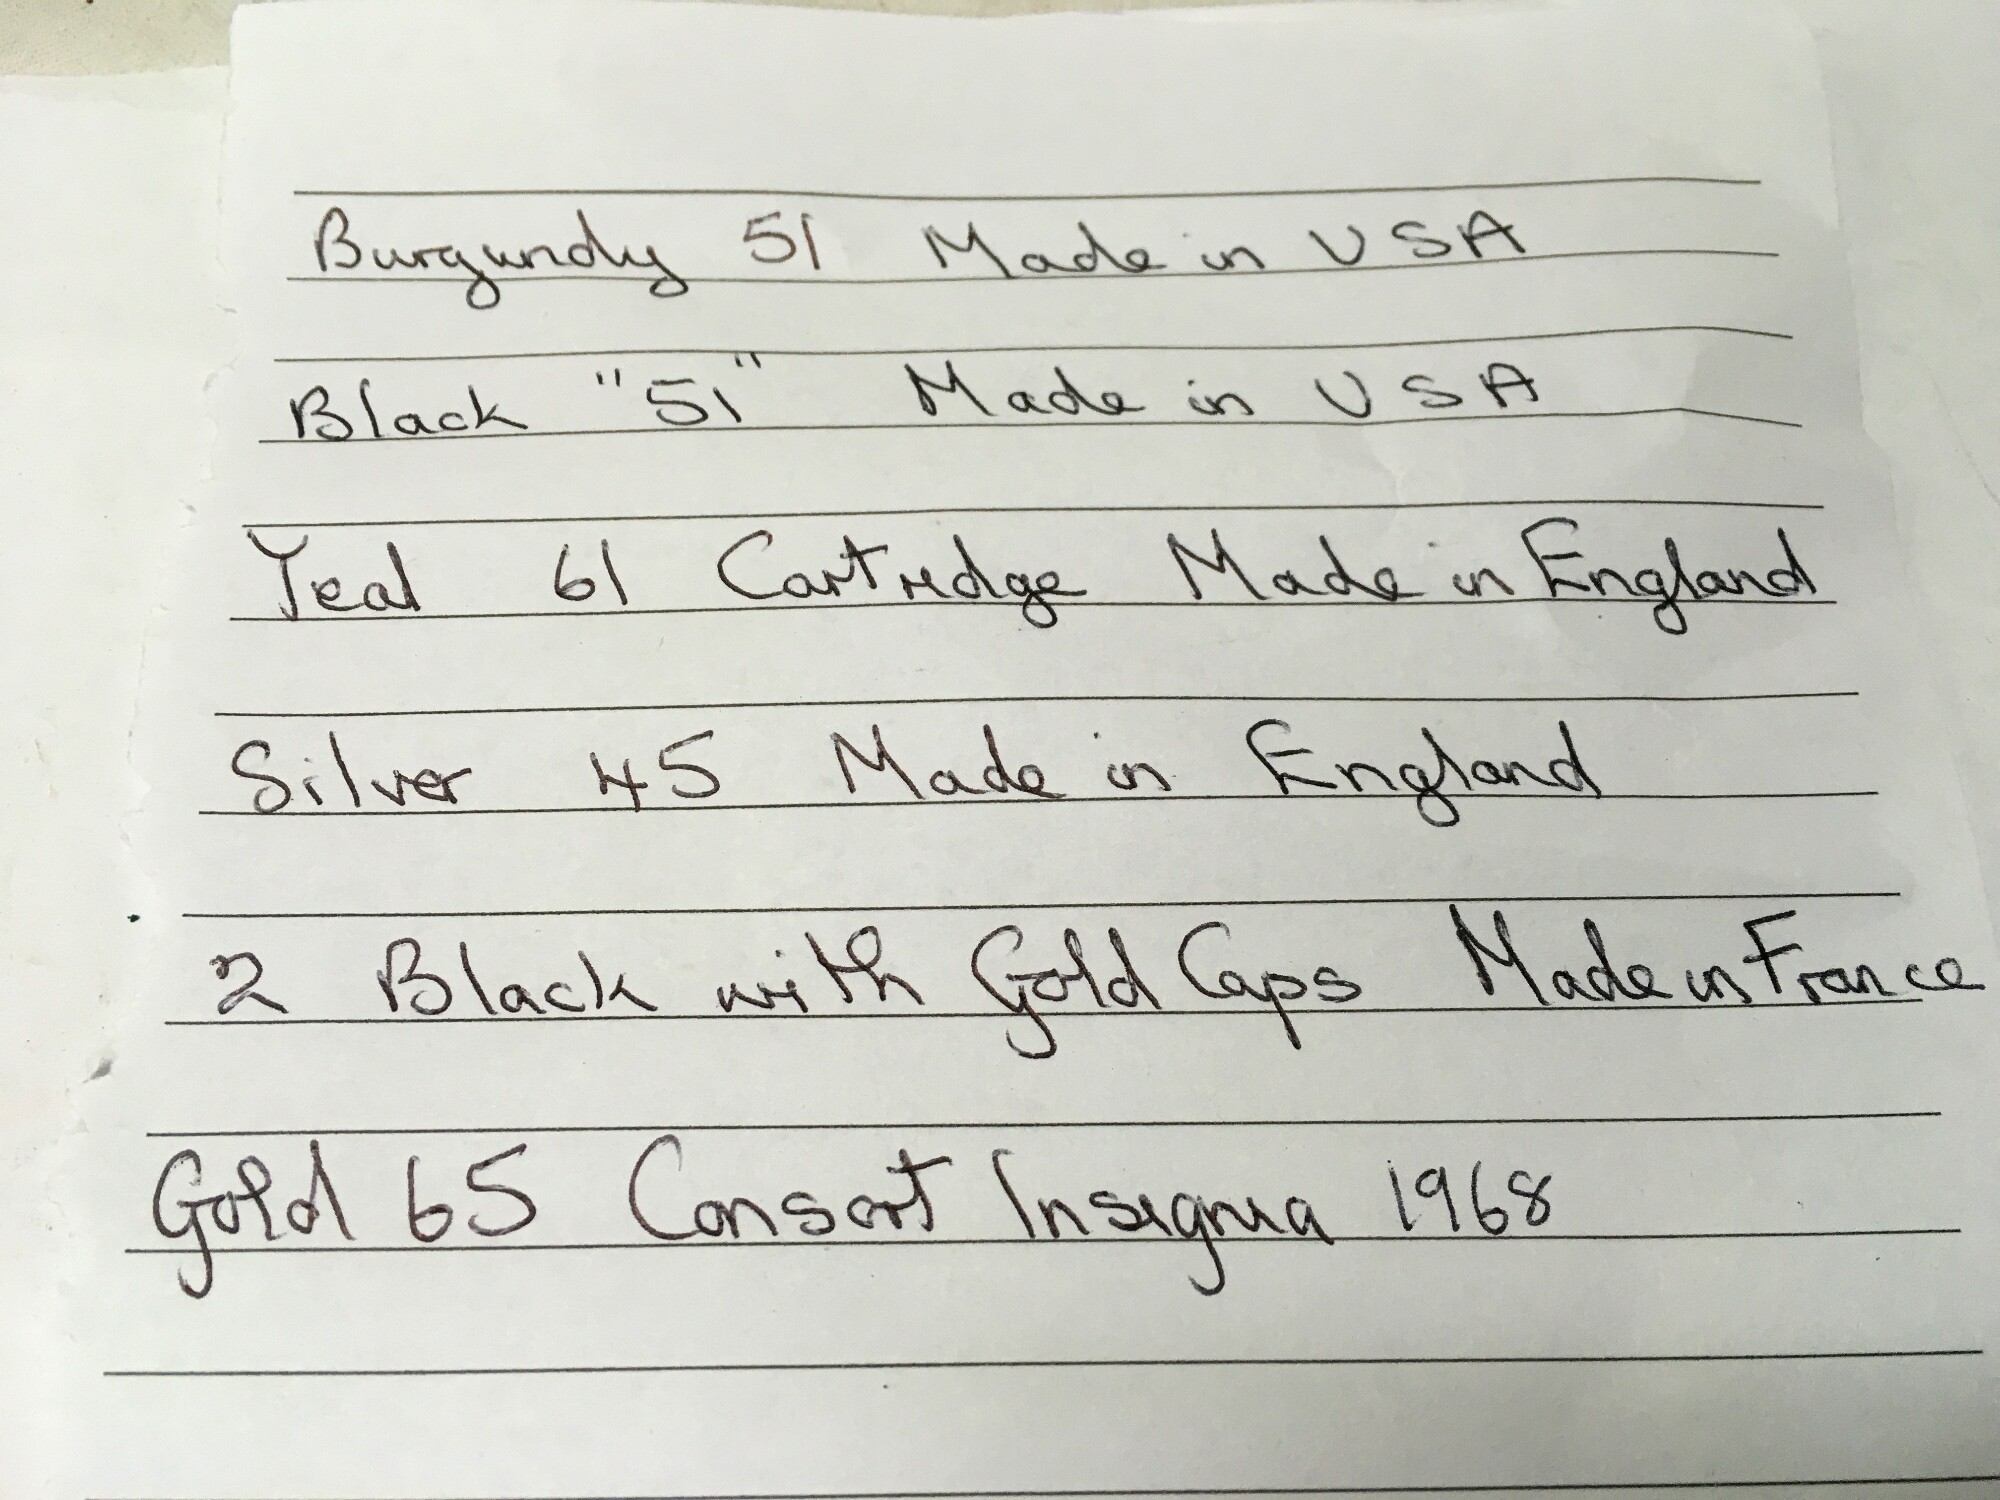 Burgundy 51 Made in USA
Black "51" Made in USA
Teal 61 Cartridge Made in England
Silver 45 Made in England
2 Black with Gold Caps Made in France
Gold 65 Consort Insignia 1968